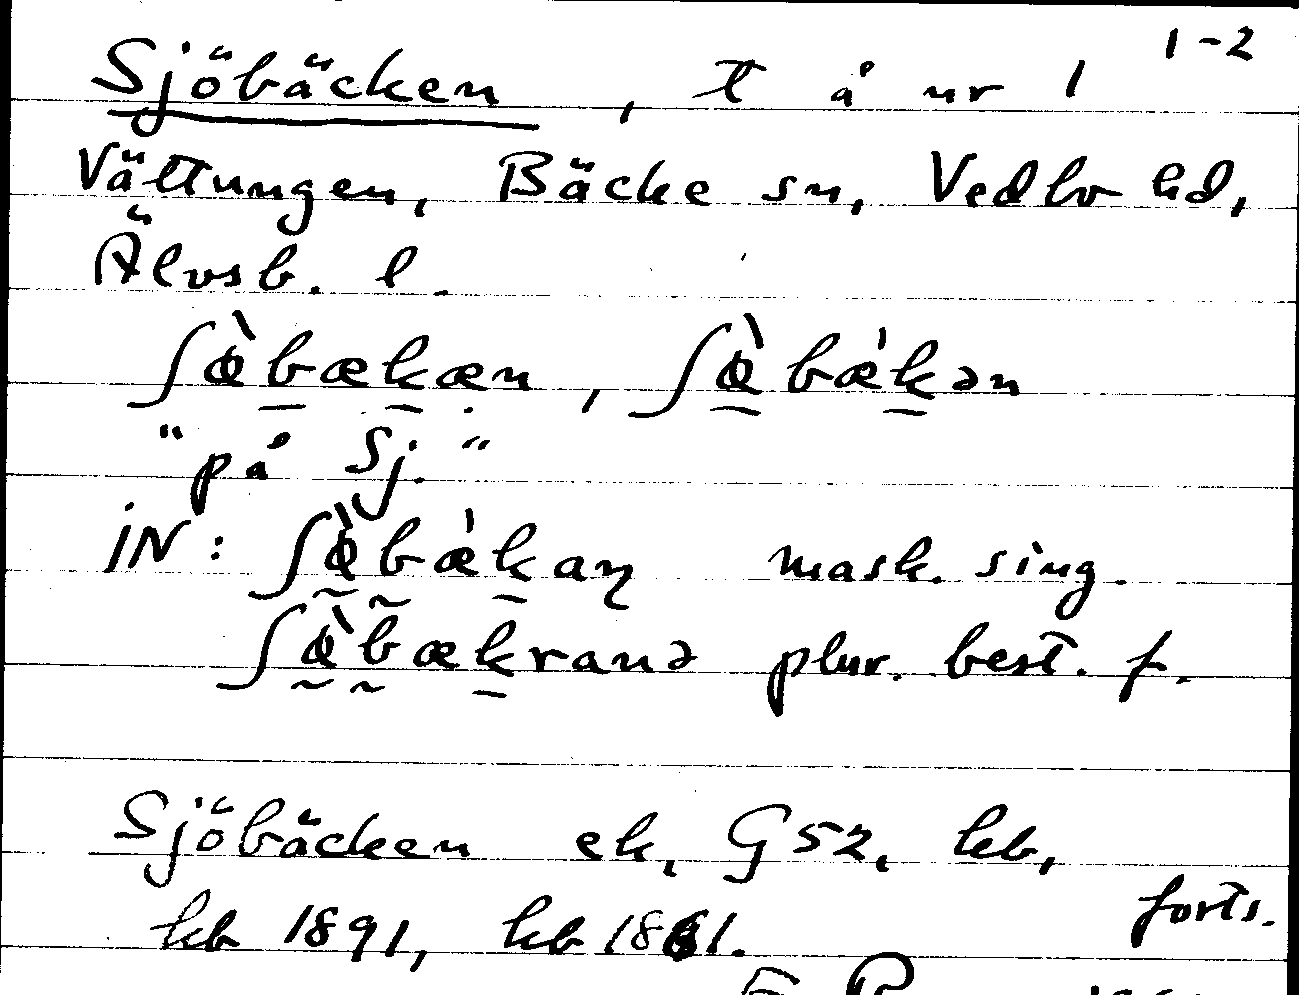 1-2
Sjöbäcken, t å nr 1
Vättungen, Bäcke sn, Vedbo hd,
Älvsb. l.
ʃœ̀bækæn, ʃœ̀bæ̀kən
"på Sj."
iN: ʃœ̀bæ̀kaɳ mask. sing.
ʃœ̀bækranə plur. best. f.
Sjöbäcken ek, G52, kb,
kb 1891, kb 1861. forts.